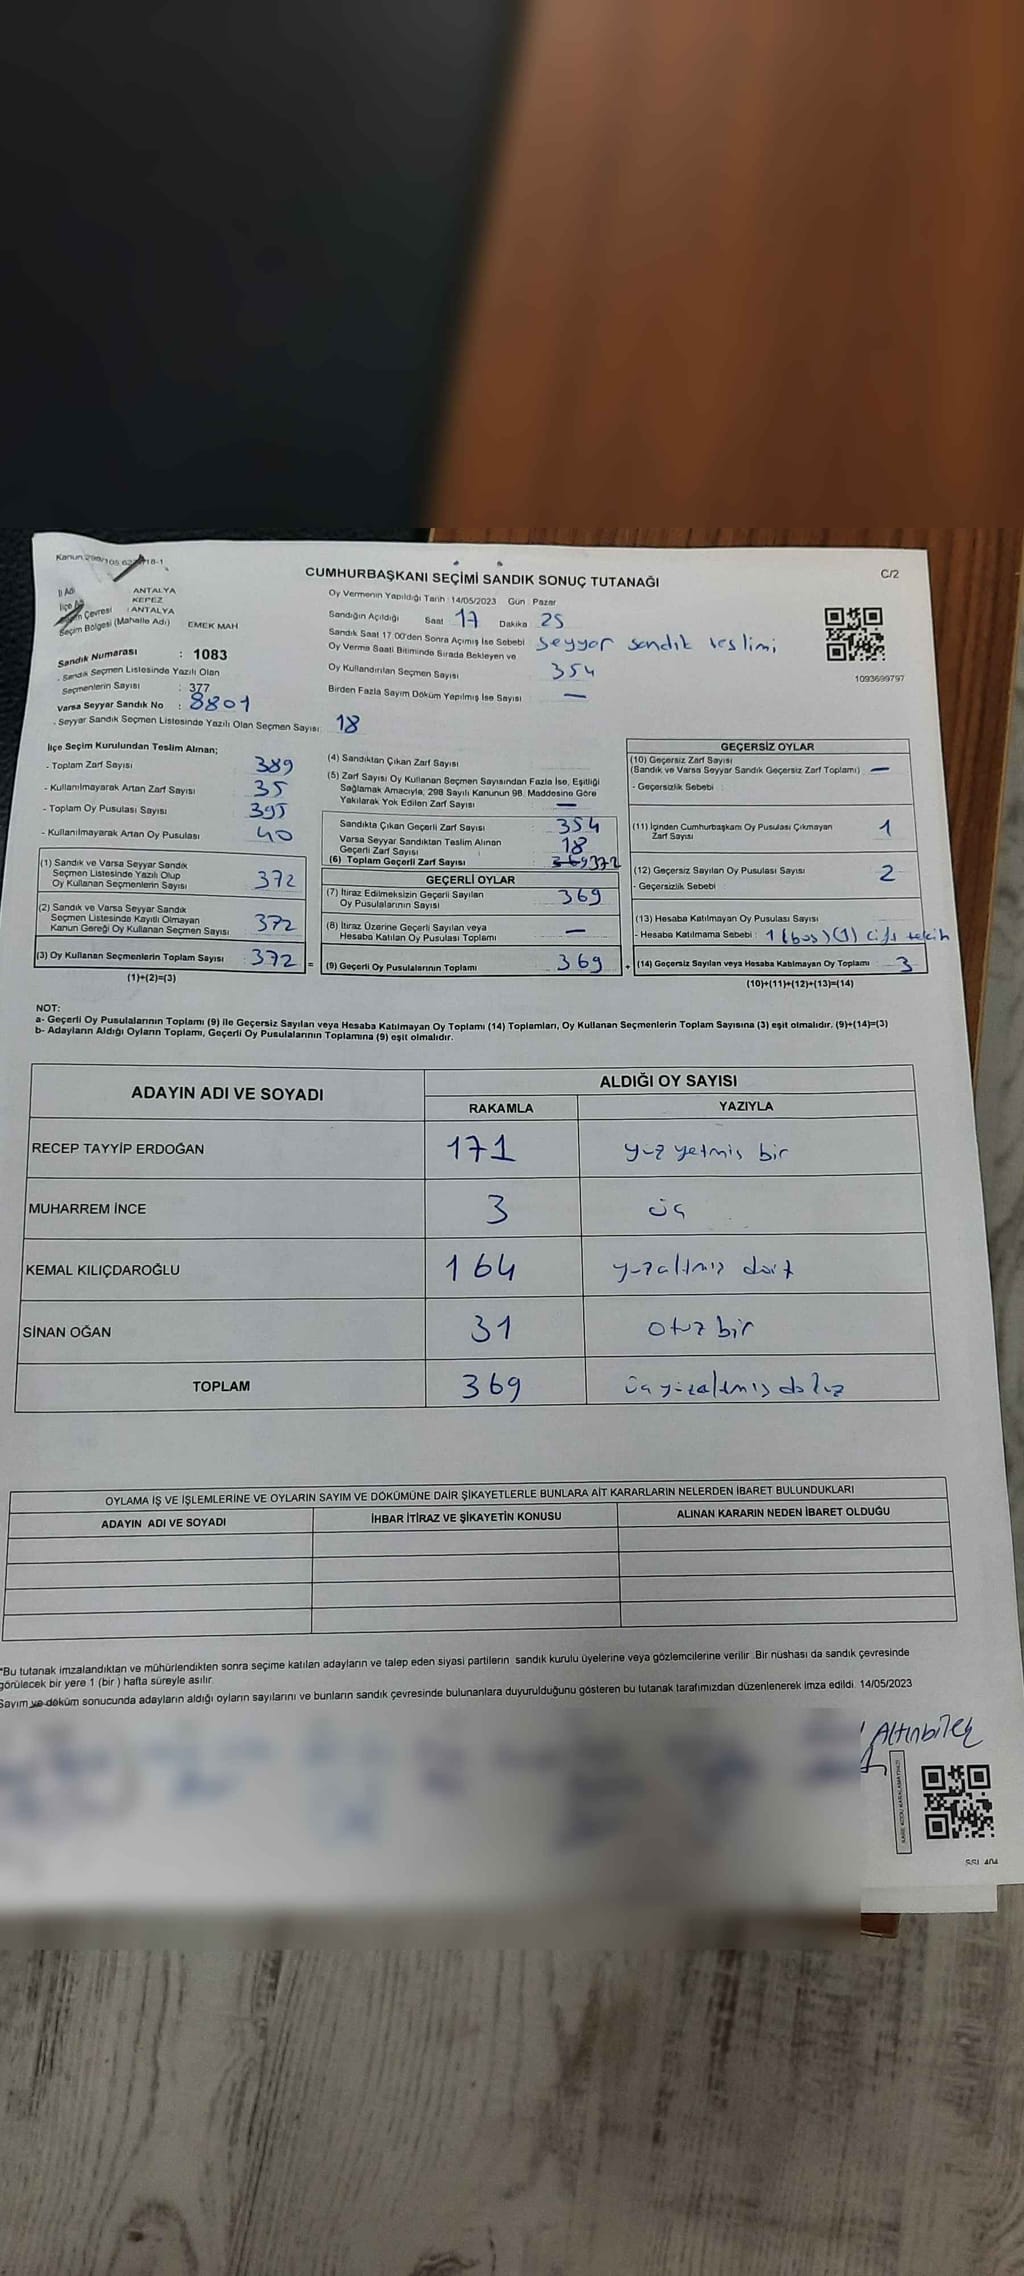 Kanun:298/105
C/2
CUMHURBAŞKANI SEÇİMİ SANDIK SONUÇ TUTANAĞI
İl Adı : ANTALYA
İlçe Adı KEPEZ
Seçim Çevresi : ANTALYA
Seçim Bölgesi (Mahalle Adı) EMEK MAH
Sandık Numarası : 1083
- Sandık Seçmen Listesinde Yazılı Olan
Seçmenlerin Sayısı : 377
Varsa Seyyar Sandık No : 8801
- Seyyar Sandık Seçmen Listesinde Yazılı Olan Seçmen Sayısı 18
Oy Vermenin Yapıldığı Tarih :14/05/2023 Gün : Pazar
Sandığın Açıldığı Saat 17 Dakika 25
Sandık Saat 17.00'den Sonra Açımış İse Sebebi seyyar sandık teslimi
Oy Verme Saati Bitiminde Sırada Bekleyen ve
Oy Kullandırılan Seçmen Sayısı 354
Birden Fazla Sayım Döküm Yapılmış İse Sayısı —
1093699797
İlçe Seçim Kurulundan Teslim Alınan;
- Toplam Zarf Sayısı 389
- Kullanılmayarak Artan Zarf Sayısı 35
- Toplam Oy Pusulası Sayısı 395
- Kullanılmayarak Artan Oy Pusulası 40
(1) Sandık ve Varsa Seyyar Sandık
Seçmen Listesinde Yazılı Olup
Oy Kullanan Seçmenlerin Sayısı 372
(2) Sandık ve Varsa Seyyar Sandık
Seçmen Listesinde Kayıtlı Olmayan
Kanun Gereği Oy Kullanan Seçmen Sayısı 372
(3) Oy Kullanan Seçmenlerin Toplam Sayısı 372 =
(1)+(2)=(3)
(4) Sandıktan Çıkan Zarf Sayısı
(5) Zarf Sayısı Oy Kullanan Seçmen Sayısından Fazla İse, Eşitliği
Sağlamak Amacıyla, 298 Sayılı Kanunun 98. Maddesine Göre
Yakılarak Yok Edilen Zarf Sayısı —
Sandıkta Çıkan Geçerli Zarf Sayısı 354
Varsa Seyyar Sandıktan Teslim Alınan
Geçerli Zarf Sayısı 18
(6) Toplam Geçerli Zarf Sayısı 369 372
GEÇERLİ OYLAR
(7) İtiraz Edilmeksizin Geçerli Sayılan
Oy Pusulalarının Sayısı 369
(8) İtiraz Üzerine Geçerli Sayılan veya
Hesaba Katılan Oy Pusulası Toplamı —
(9) Geçerli Oy Pusulalarının Toplamı 369 +
GEÇERSİZ OYLAR
(10) Geçersiz Zarf Sayısı
(Sandık ve Varsa Seyyar Sandık Geçersiz Zarf Toplamı) —
- Geçersizlik Sebebi :
(11) İçinden Cumhurbaşkanı Oy Pusulası Çıkmayan
Zarf Sayısı 1
(12) Geçersiz Sayılan Oy Pusulası Sayısı 2
- Geçersizlik Sebebi
(13) Hesaba Katılmayan Oy Pusulası Sayısı
- Hesaba Katılmama Sebebi : 1 (boş) (1) çift tercih
(14) Geçersiz Sayılan veya Hesaba Katılmayan Oy Toplamı 3
(10)+(11)+(12)+(13)=(14)
NOT:
a- Geçerli Oy Pusulalarının Toplamı (9) ile Geçersiz Sayılan veya Hesaba Katılmayan Oy Toplamı (14) Toplamları, Oy Kullanan Seçmenlerin Toplam Sayısına (3) eşit olmalıdır. (9)+(14)=(3)
b- Adayların Aldığı Oyların Toplamı, Geçerli Oy Pusulalarının Toplamına (9) eşit olmalıdır.
ADAYIN ADI VE SOYADI ALDIĞI OY SAYISI
RAKAMLA YAZIYLA
RECEP TAYYİP ERDOĞAN 171 yüz yetmiş bir
MUHARREM İNCE 3 üç
KEMAL KILIÇDAROĞLU 164 yüzaltmış dört
SİNAN OĞAN 31 otuz bir
TOPLAM 369 üçyüzaltmış dokuz
OYLAMA İŞ VE İŞLEMLERİNE VE OYLARIN SAYIM VE DÖKÜMÜNE DAİR ŞİKAYETLERLE BUNLARA AİT KARARLARIN NELERDEN İBARET BULUNDUKLARI
ADAYIN ADI VE SOYADI İHBAR İTİRAZ VE ŞİKAYETİN KONUSU ALINAN KARARIN NEDEN İBARET OLDUĞU
*Bu tutanak imzalandıktan ve mühürlendikten sonra seçime katılan adayların ve talep eden siyasi partilerin sandık kurulu üyelerine veya gözlemcilerine verilir. Bir nüshası da sandık çevresinde
görülecek bir yere 1 (bir ) hafta süreyle asılır.
Sayım ve döküm sonucunda adayların aldığı oyların sayılarını ve bunların sandık çevresinde bulunanlara duyurulduğunu gösteren bu tutanak tarafımızdan düzenlenerek imza edildi. 14/05/2023
Altınbilek
KARE KODU KARALAMAYINIZ!